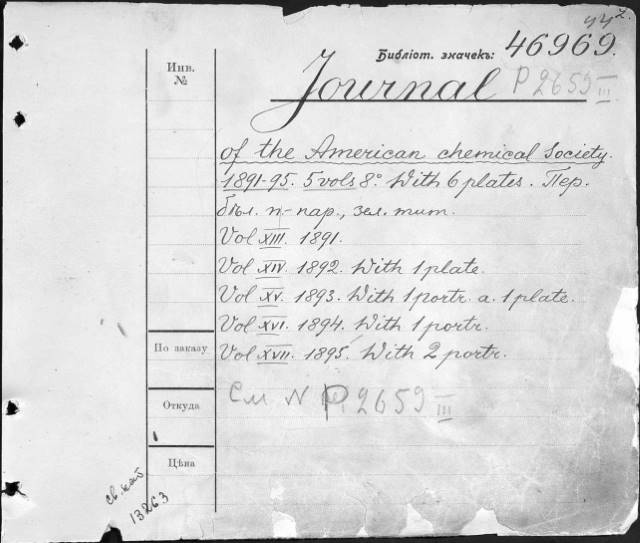 442
Библіот. значекъ: 46969.
Инв.
№
Journal P 2659 III
of the American chemical Society.
1891-95. 5 vols 8° With 6 plates. Пер.
бѣл. п.-пар., зел. тит.
Vol XIII. 1891.
Vol XIV. 1892. With 1 plate.
Vol XV. 1893. With 1 portr. a. 1 plate.
Vol XVI. 1894. With 1 portr.
По заказу
Vol XVII. 1895. With 2 portr.
Откуда
См N P 2659 III
Цѣна
13263